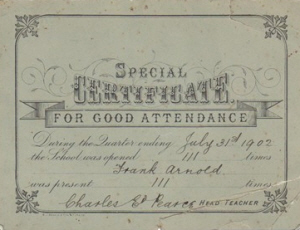 SPECIAL
CERTIFICATE
FOR GOOD ATTENDANCE
During the Quarter ending July 31st 1902
the School was opened 111 times
Frank Arnold
was present 111 times
Charles Ed Pearce HEAD TEACHER